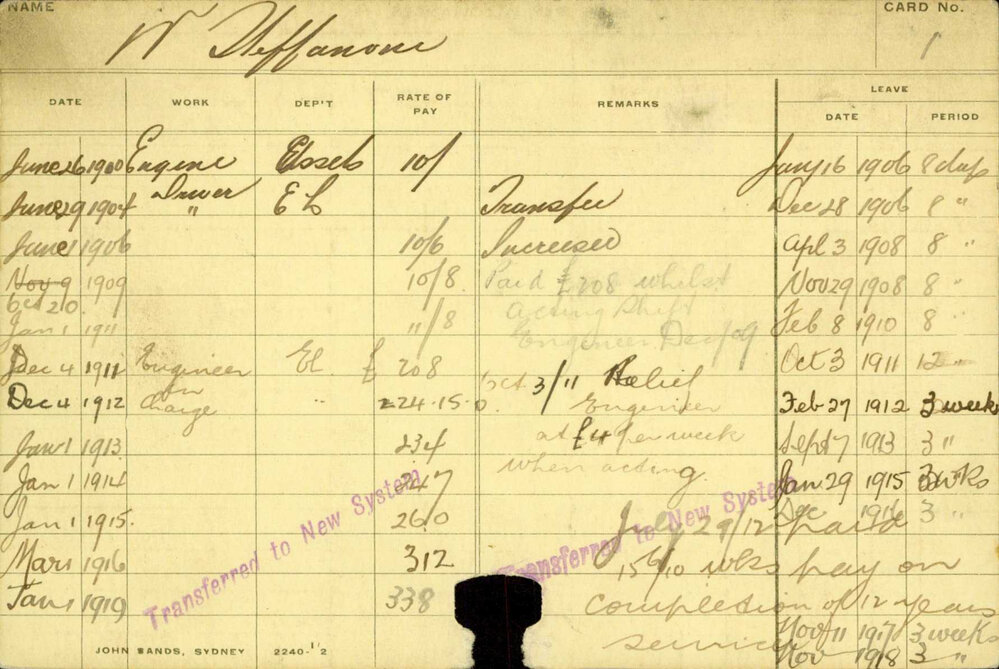 NAME W Steffanoni CARD No. 1
DATE WORK DEP'T RATE OF PAY REMARKS LEAVE
DATE PERIOD
June 26 1900 Engine Closets 10/ Jany 16 1906 8 days
Driver
June 29 1904 " E L Transfer Dec 28 1906 8 "
June 1 1906 10/6 Increased Apl 3 1908 8 "
Nov 9 1909 10/8 Paid £208 whilst Nov 29 1908 8 "
Oct 20 acting Shift
Jan 1 1911 11/8 Engineer Dec/09 Feb 8 1910 8 "
Dec 4 1911 Engineer El. £ 208 Oct 3/11 Relief Oct 3 1911 12 "
in
Dec 4 1912 Charge " 224.15.0. Engineer Feb 27 1912 3 weeks
Jan 1 1913 234 at £4 per week Sept 17 1913 3 "
Jan 1 1914 247 when acting. Jan 29 1915 3 wks
Jan 1 1915. 260 July 29/12 paid Dec 1916 3 "
Mar 1 1916 312 15 6/10 wks pay on
Jan 1 1919 338 completion of 12 years
service
Nov 11 1917 3 weeks
Nov 1918 3 "
Transferred to New System
Transferred to New System
JOHN SANDS, SYDNEY 2240-1'2